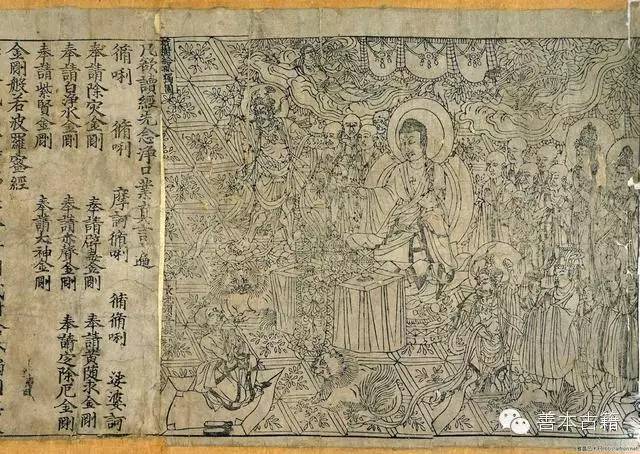 凡欲讀經先念淨口業真言一遍
脩唎 脩唎 摩訶脩唎 脩脩唎 娑婆訶
奉請除灾金剛 奉請辟毒金剛 奉請黃隨求金剛
奉請白淨水金剛 奉請赤聲金剛 奉請定除厄金剛
奉請紫賢金剛 奉請大神金剛
金剛般若波羅蜜經
善本古籍